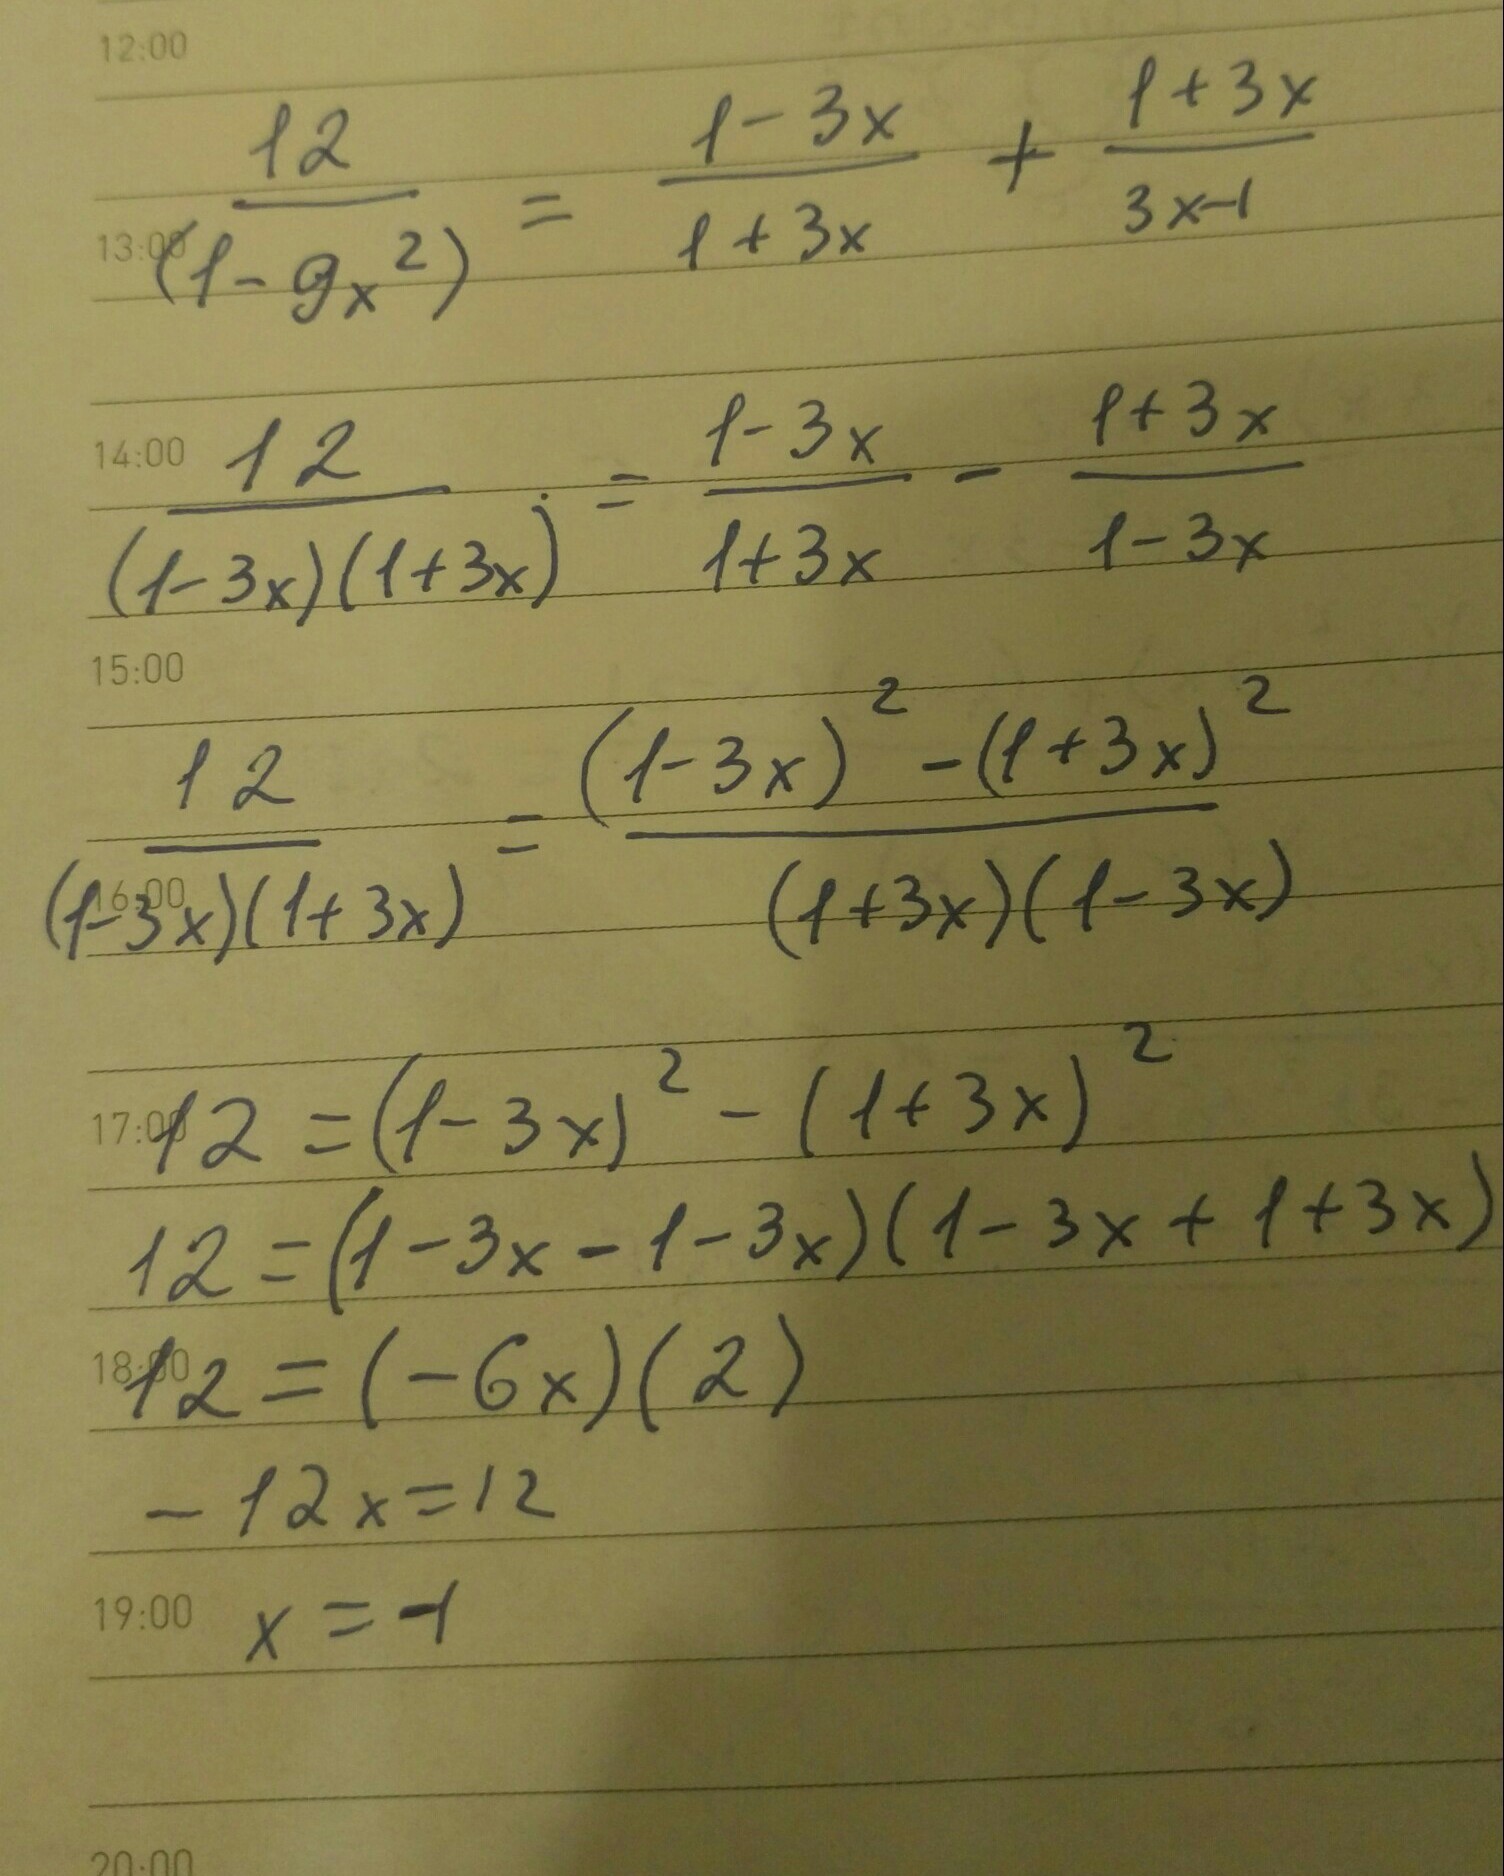 12:00
12/(1-9x²) = (1-3x)/(1+3x) + (1+3x)/(3x-1)
13:00
14:00
12/((1-3x)(1+3x)) = (1-3x)/(1+3x) - (1+3x)/(1-3x)
15:00
12/((1-3x)(1+3x)) = ((1-3x)² - (1+3x)²)/((1+3x)(1-3x))
16:00
17:00
12 = (1-3x)² - (1+3x)²
12 = (1-3x-1-3x)(1-3x+1+3x)
18:00
12 = (-6x)(2)
-12x=12
19:00
x = -1
20:00